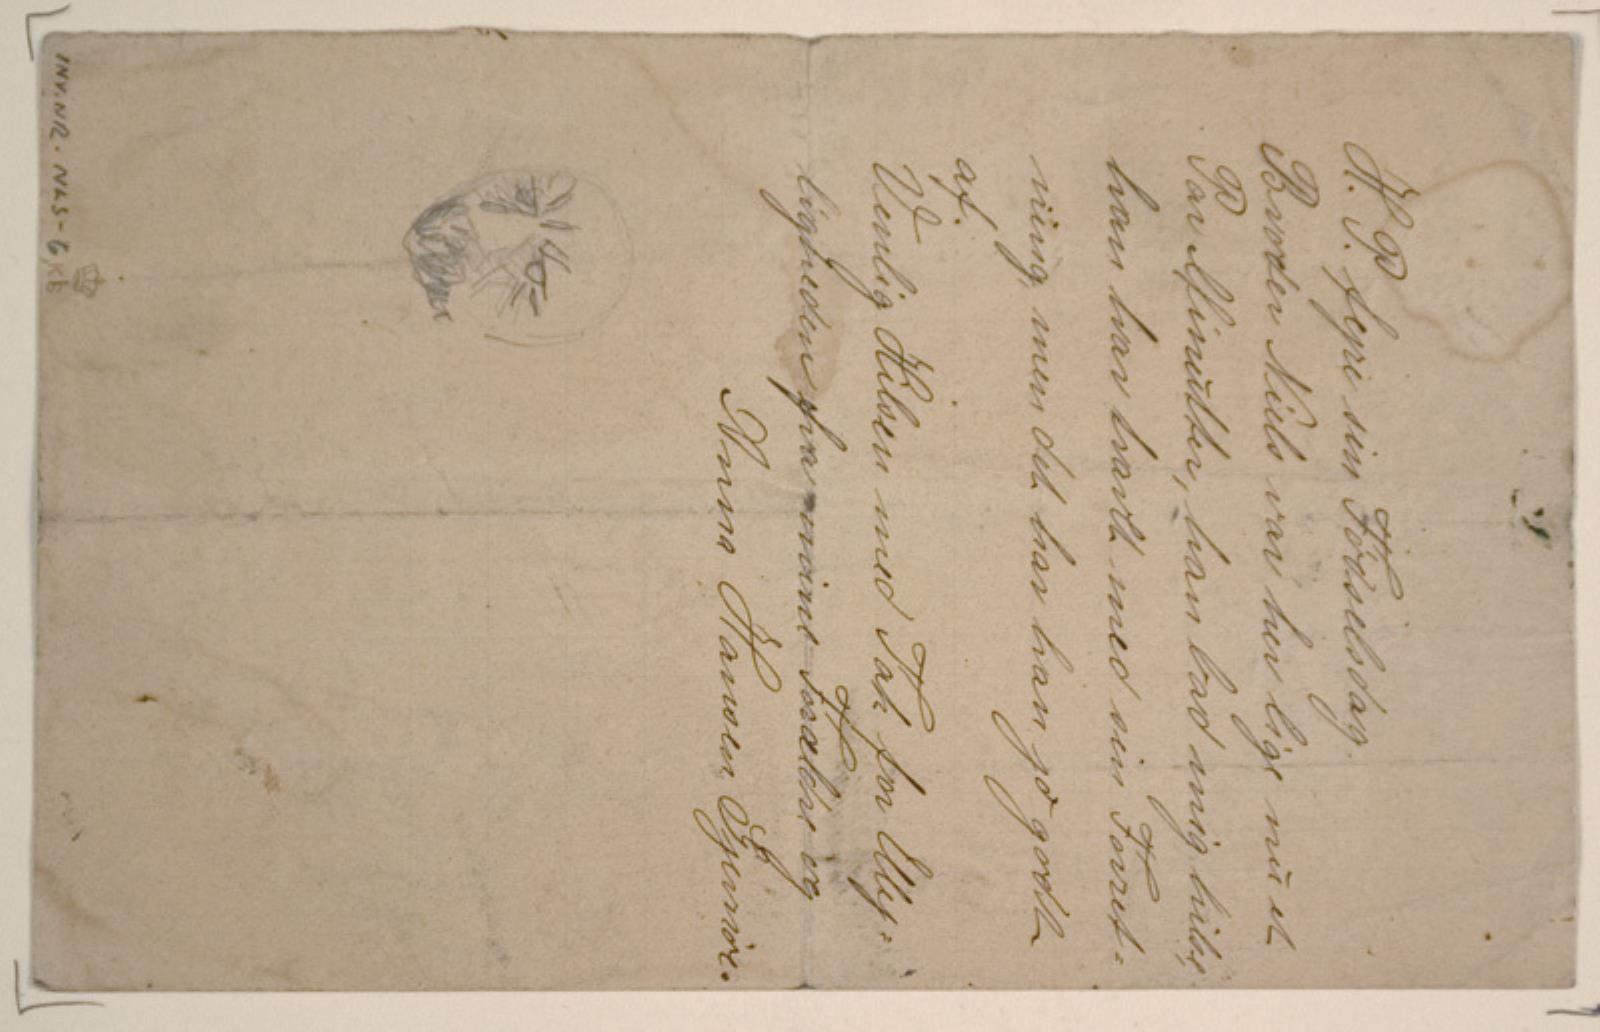 H. P. fejre sin Födselsdag.
Broder Niels var her lige nu et
Par Minutter, han bad mig hilse,
han har travlt med sin Forret-
ning, men det har han jo godt
af.
Venlig Hilsen med Tak for Elly-
ligheden fra mine Forældre og
Anna Hansen Gjemöe.
INV. NR. NKS-6 KB